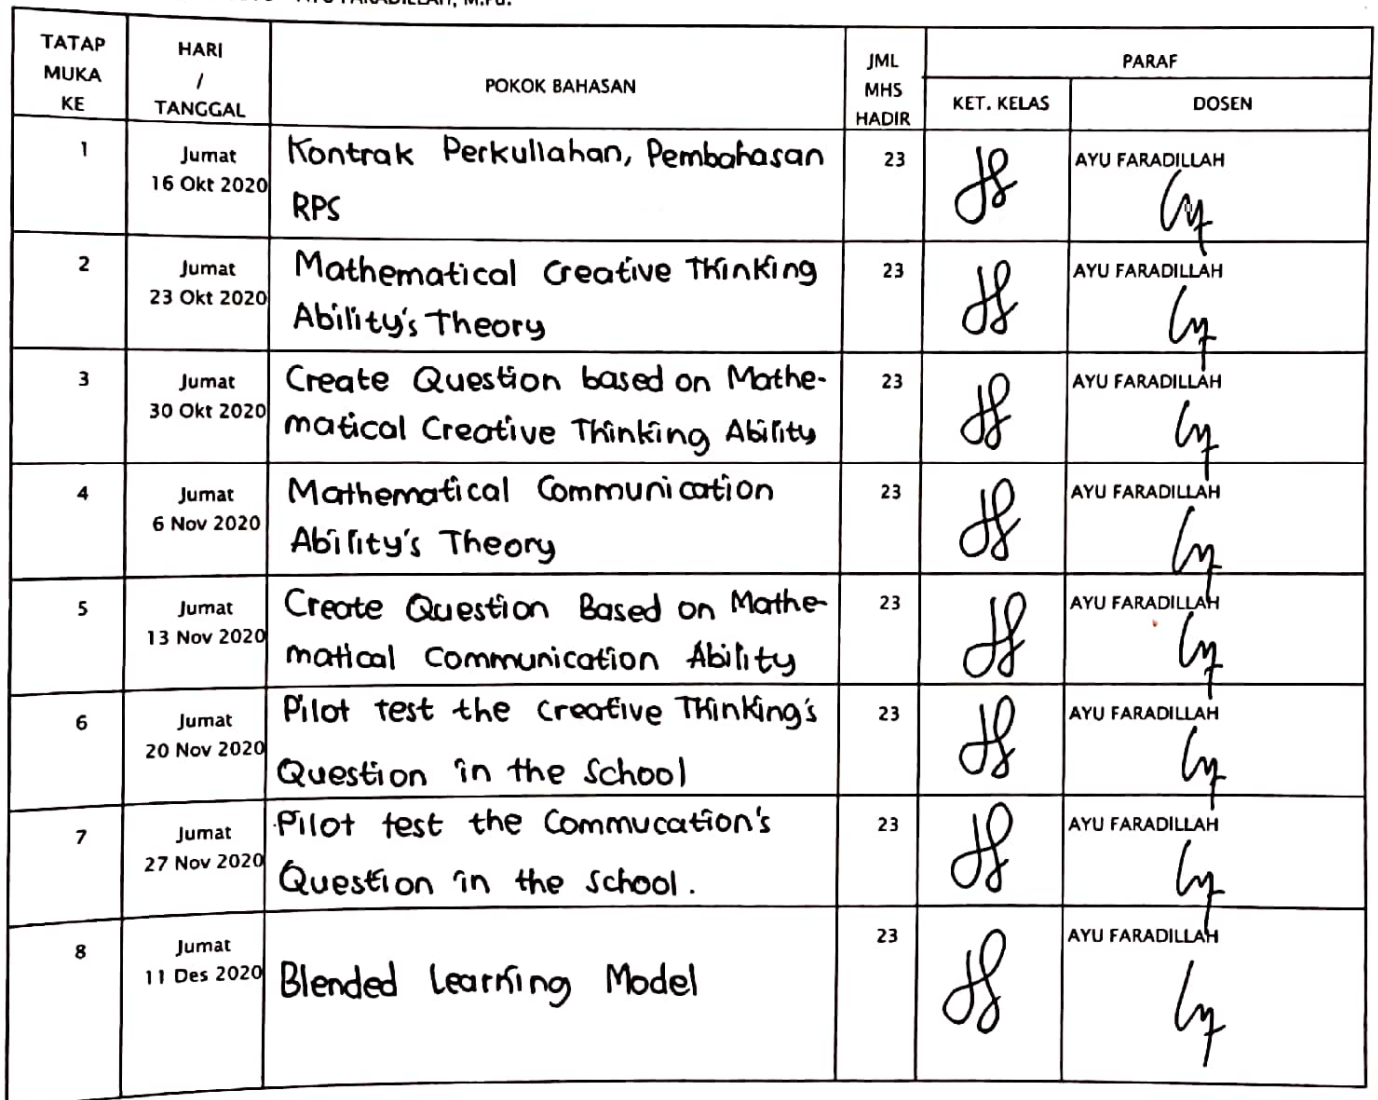 AYU FARADILLAH, M.Pd.
TATAP MUKA KE
HARI / TANGGAL
POKOK BAHASAN
JML MHS HADIR
PARAF
KET. KELAS
DOSEN
1
Jumat
16 Okt 2020
Kontrak Perkuliahan, Pembahasan
RPS
23
AYU FARADILLAH
2
Jumat
23 Okt 2020
Mathematical Creative Thinking
Ability's Theory
23
AYU FARADILLAH
3
Jumat
30 Okt 2020
Create Question based on Mathe-
matical Creative Thinking Ability
23
AYU FARADILLAH
4
Jumat
6 Nov 2020
Mathematical Communication
Ability's Theory
23
AYU FARADILLAH
5
Jumat
13 Nov 2020
Create Question Based on Mathe-
matical Communication Ability
23
AYU FARADILLAH
6
Jumat
20 Nov 2020
Pilot test the Creative Thinking's
Question in the School
23
AYU FARADILLAH
7
Jumat
27 Nov 2020
Pilot test the Commucation's
Question in the School.
23
AYU FARADILLAH
8
Jumat
11 Des 2020
Blended Learning Model
23
AYU FARADILLAH